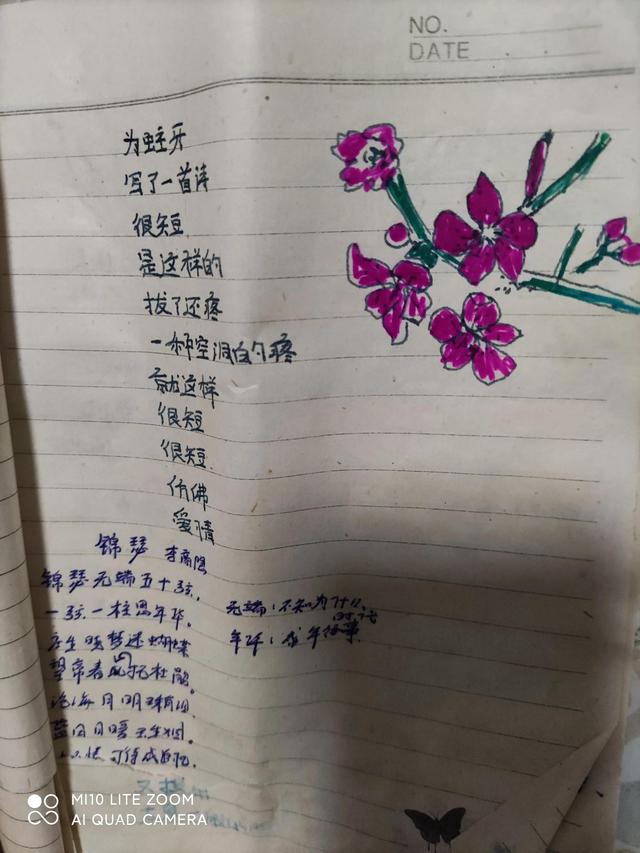 NO.
DATE
为蛀牙
写了一首诗
很短
是这样的
拔了还疼
一种空洞的疼
就这样
很短
很短
仿佛
爱情
锦瑟 李商隐
锦瑟无端五十弦,
一弦一柱思年华。
庄生晓梦迷蝴蝶
望帝春心托杜鹃。
沧海月明珠有泪
蓝田日暖玉生烟.
此情可待成追忆.
无端:不知为什么
年华:
MI10 LITE ZOOM
AI QUAD CAMERA